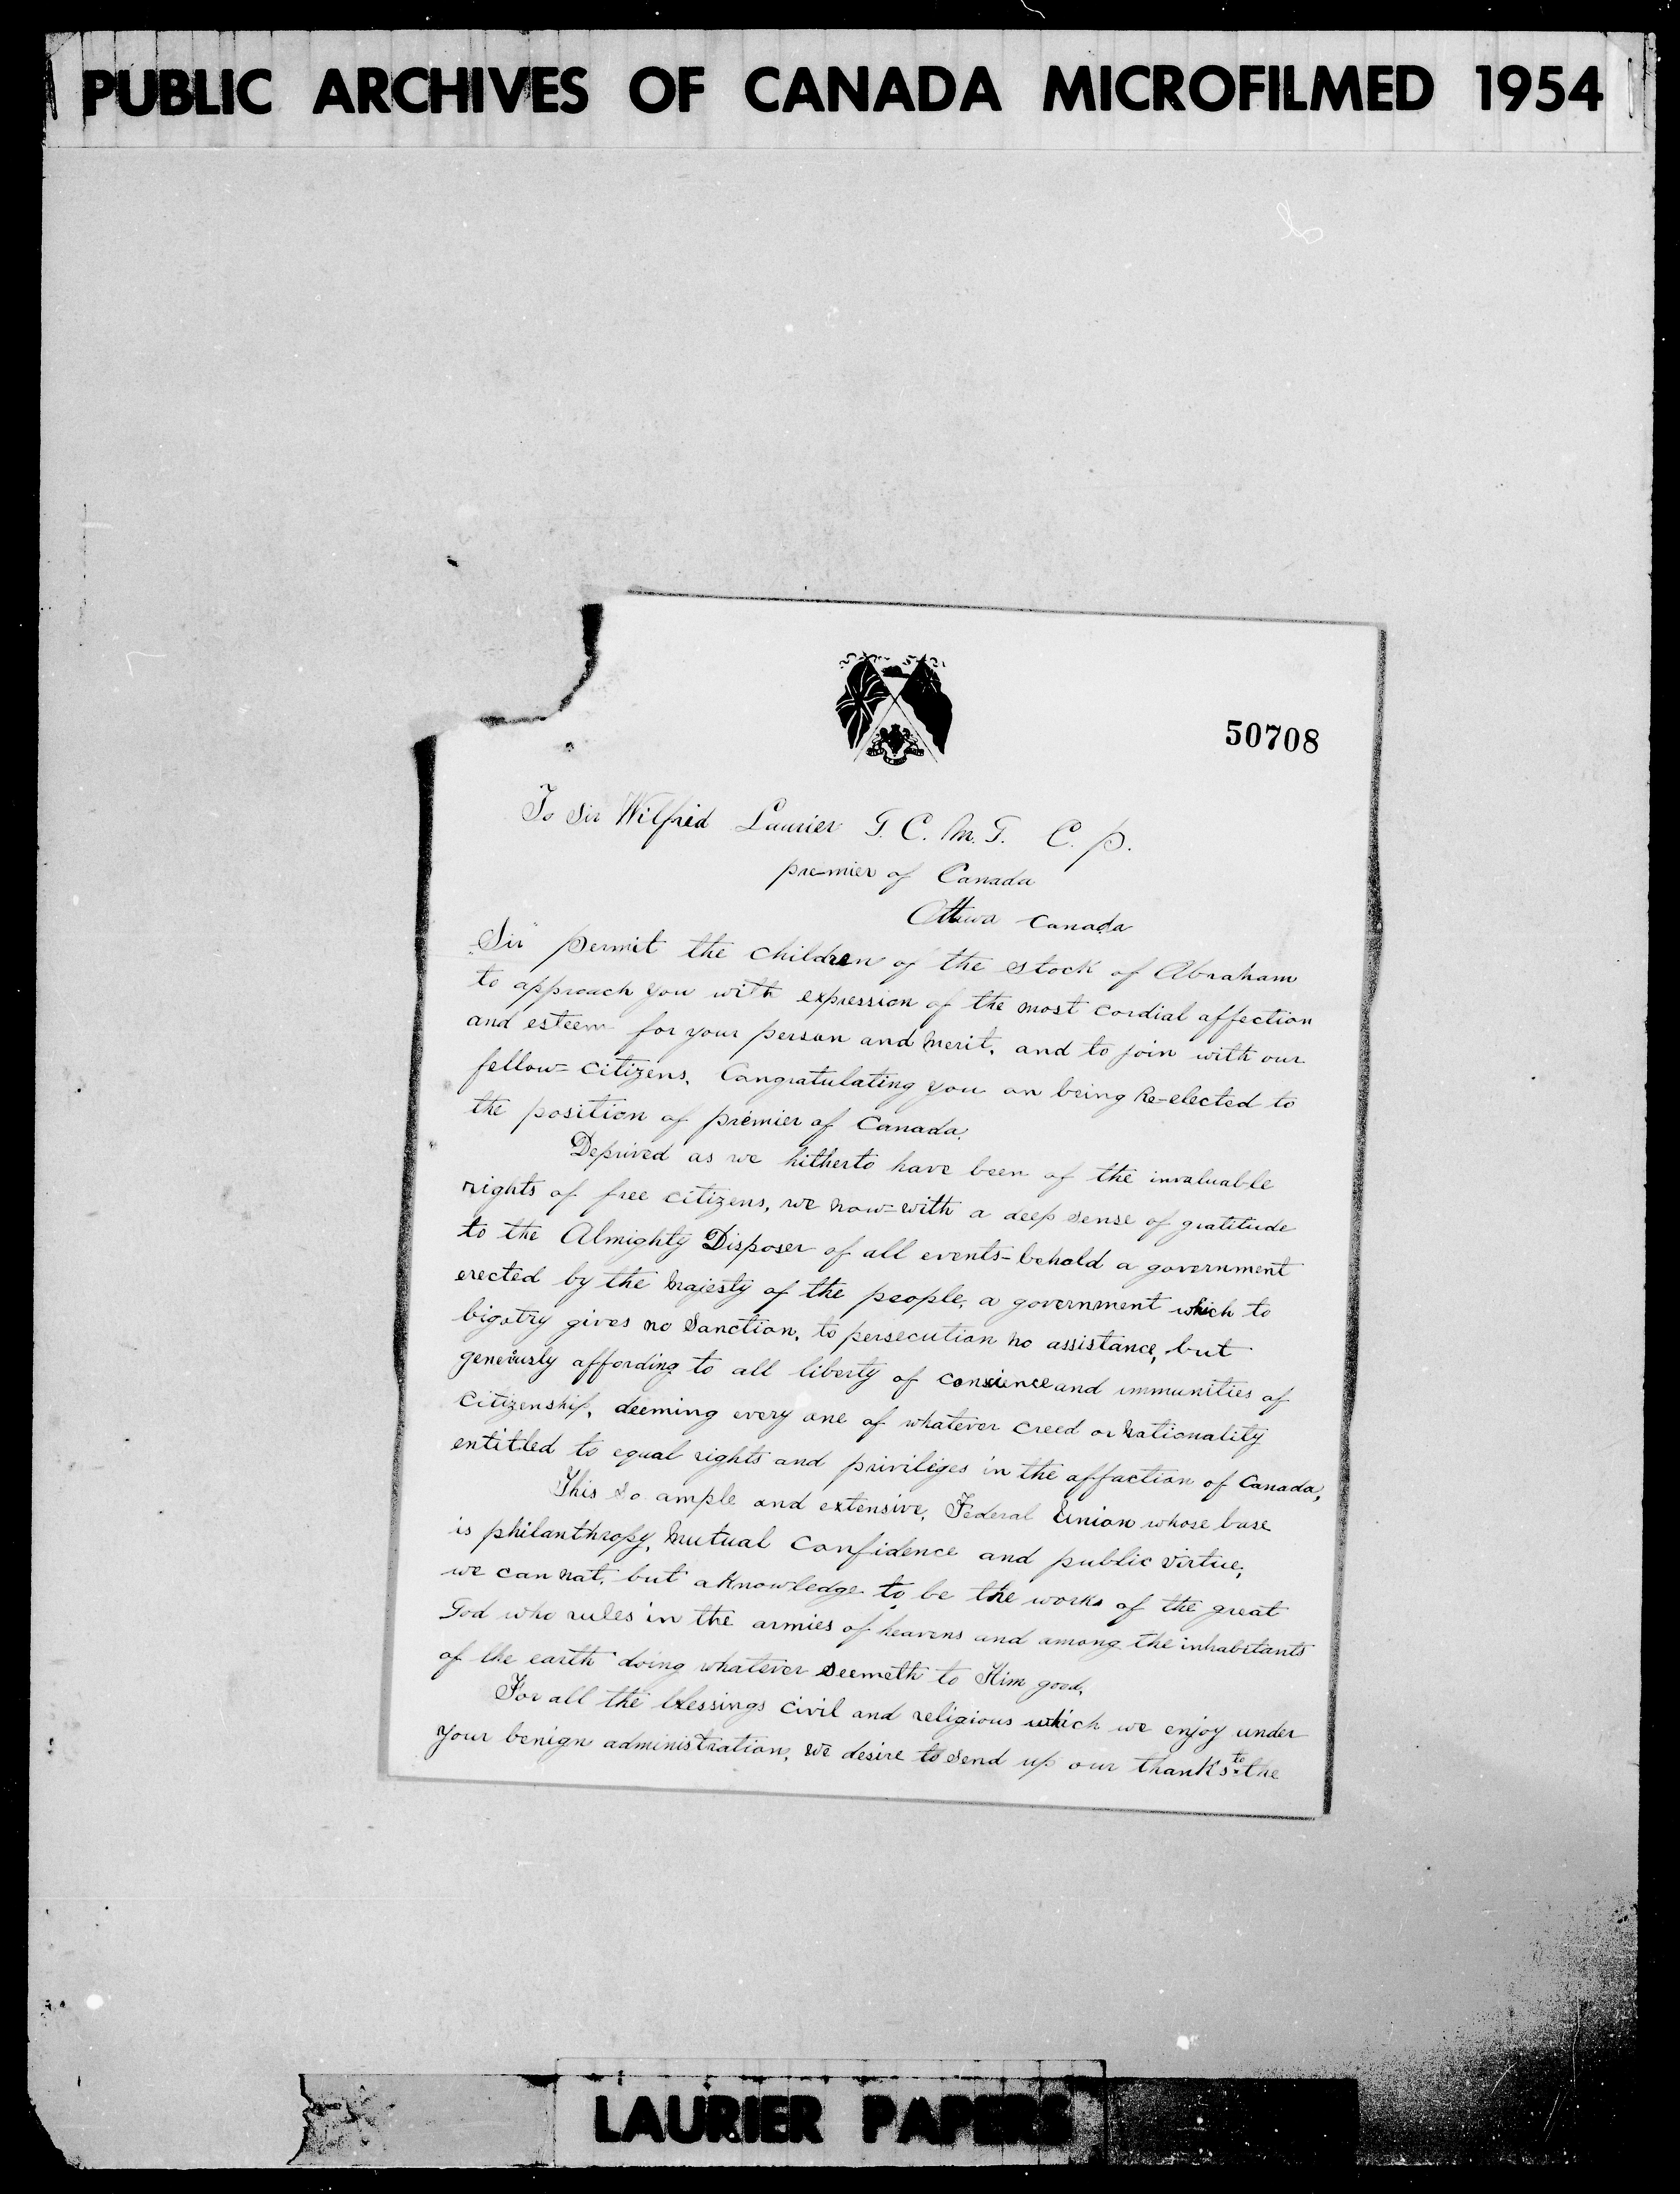 PUBLIC ARCHIVES OF CANADA MICROFILMED 1954
50708
To Sir Wilfrid Laurier G. C. M. G. C. P.
premier of Canada
Ottawa Canada
Sir" permit the children of the stock of Abraham
to approach you with expression of the most cordial affection
and esteem for your person and merit, and to join with our
fellow=citizens, Congratulating you on being Re-elected to
the position of premier of Canada.
Deprived as we hitherto have been of the invaluable
rights of free citizens, we now=with a deep sense of gratitude
to the Almighty Disposer of all events-behold a government
erected by the Majesty of the people, a government which to
bigotry gives no Sanction, to persecution no assistance, but
generiusly affording to all liberty of conscience and immunities of
citizenship, deeming every one of whatever creed or Nationality
entitled to equal rights and privileges in the affaction of Canada,
This so ample and extensive, Federal Union whose base
is philanthropy, Mutual Confidence and public virtue,
we can not, but aknowledge to be the works of the great
God who rules in the armies of heavens and among the inhabitants
of the earth doing whatever seemeth to Him good,
For all the blessings civil and religious which we enjoy under
your benign administration, we desire to send up our thanks to the
LAURIER PAPERS